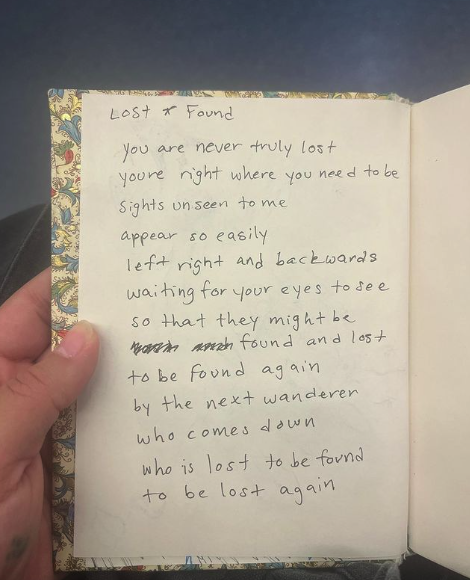 Lost + Found
you are never truly lost
youre right where you need to be
sights unseen to me
appear so easily
left right and backwards
waiting for your eyes to see
so that they might be
found and lost
to be found again
by the next wanderer
who comes down
who is lost to be found
to be lost again